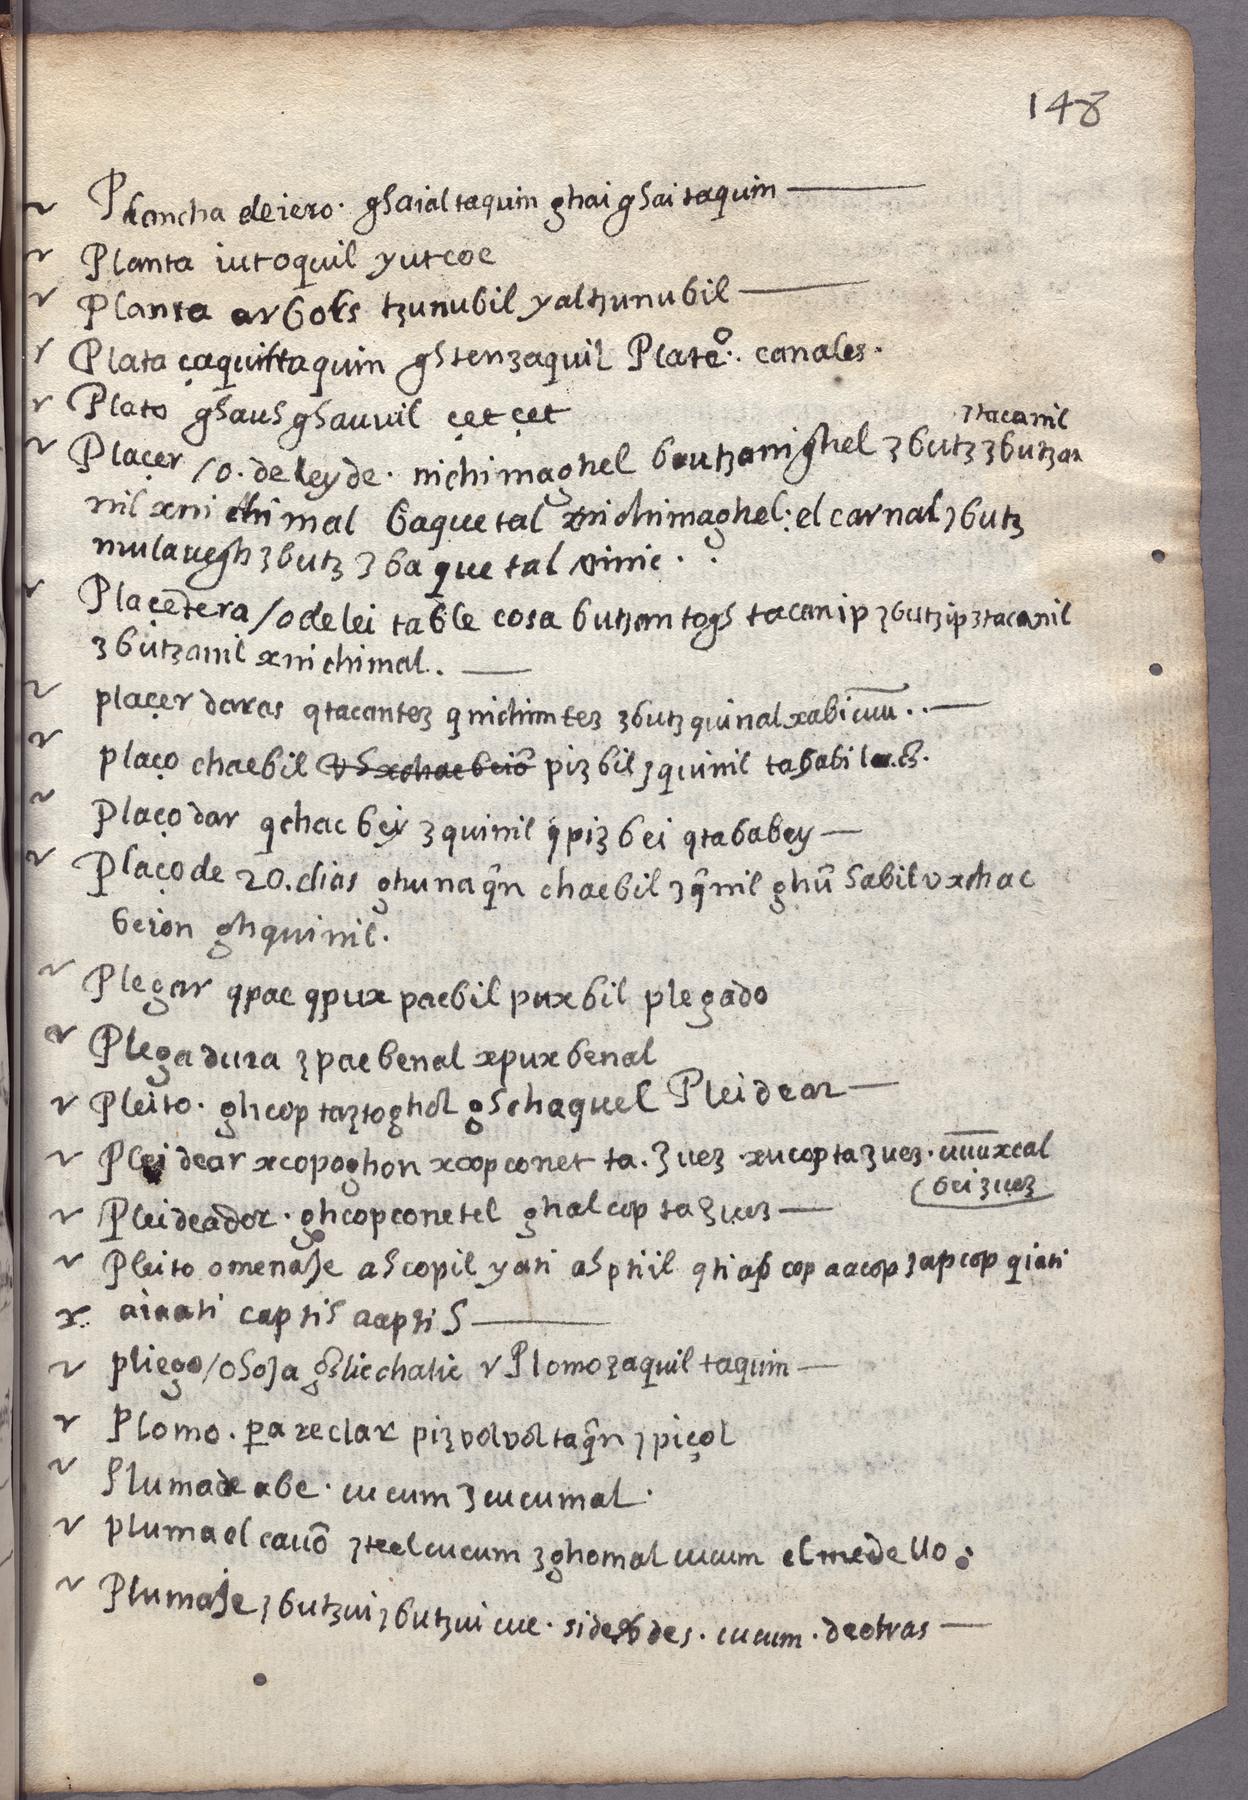 148
Plancha deiero. ghaialtaquin ghaighaitaquin
Planta iutoquil yutcoe
Planta arboles tzunubil yaltzunubil
Plata çaquiltaquin ghtenzaquil Plateº. canales.
Plato ghauhghauuil çet çet
ztacanil
Plaçer /o. deleyde. nichimaghel butzanighel zbutz zbutzan
nil xnichimal baquetal xnichimaghel. el carnal zbutz
mulauegh zbutz zbaquetal vinic.
Plaçētera /o delei table cosa butzantogh tacanip zbutzip ztacanil
zbutzanil xnichimal..
plaçer daras qtacantez qnichimtez zbutz quinal xabicuu..
plaço chaebil pizbil zquinil tababil
Plaço dar qchacbey zquinil qpizbei qtababey
Plaço de 20. dias ghunaq̃n chaebil zq̃nil ghũ habil vxchac
beion ghquinil.
Plegar qpac qpux pacbil puxbil plegado
Plegadura zpacbenal xpuxbenal
Pleito. ghcop taztoghol ghchaquel Pleidear
Pleidear xcopoghon xcopconet ta. zuez xucop ta zuez. uuuxcal
bei zuez
Pleideador. ghcopconetel ghalcop ta zuez
Pleito omenaje ahcopil yati ahptiil qtiap cop aacop zapcop qiati
aiaati captih aaptih
pliego/ohoja ghlic chalic v Plomo zaquil taquin
Plomo. para reclar pizvolvoltaq̃n zpiçol
Plumade abe. cucum zcucumal.
pluma el cauõ zteelcucum zghomal cucum el medello
Plumaje zbutzui zbutzuicuc. sidexbdes. cucum. deotras